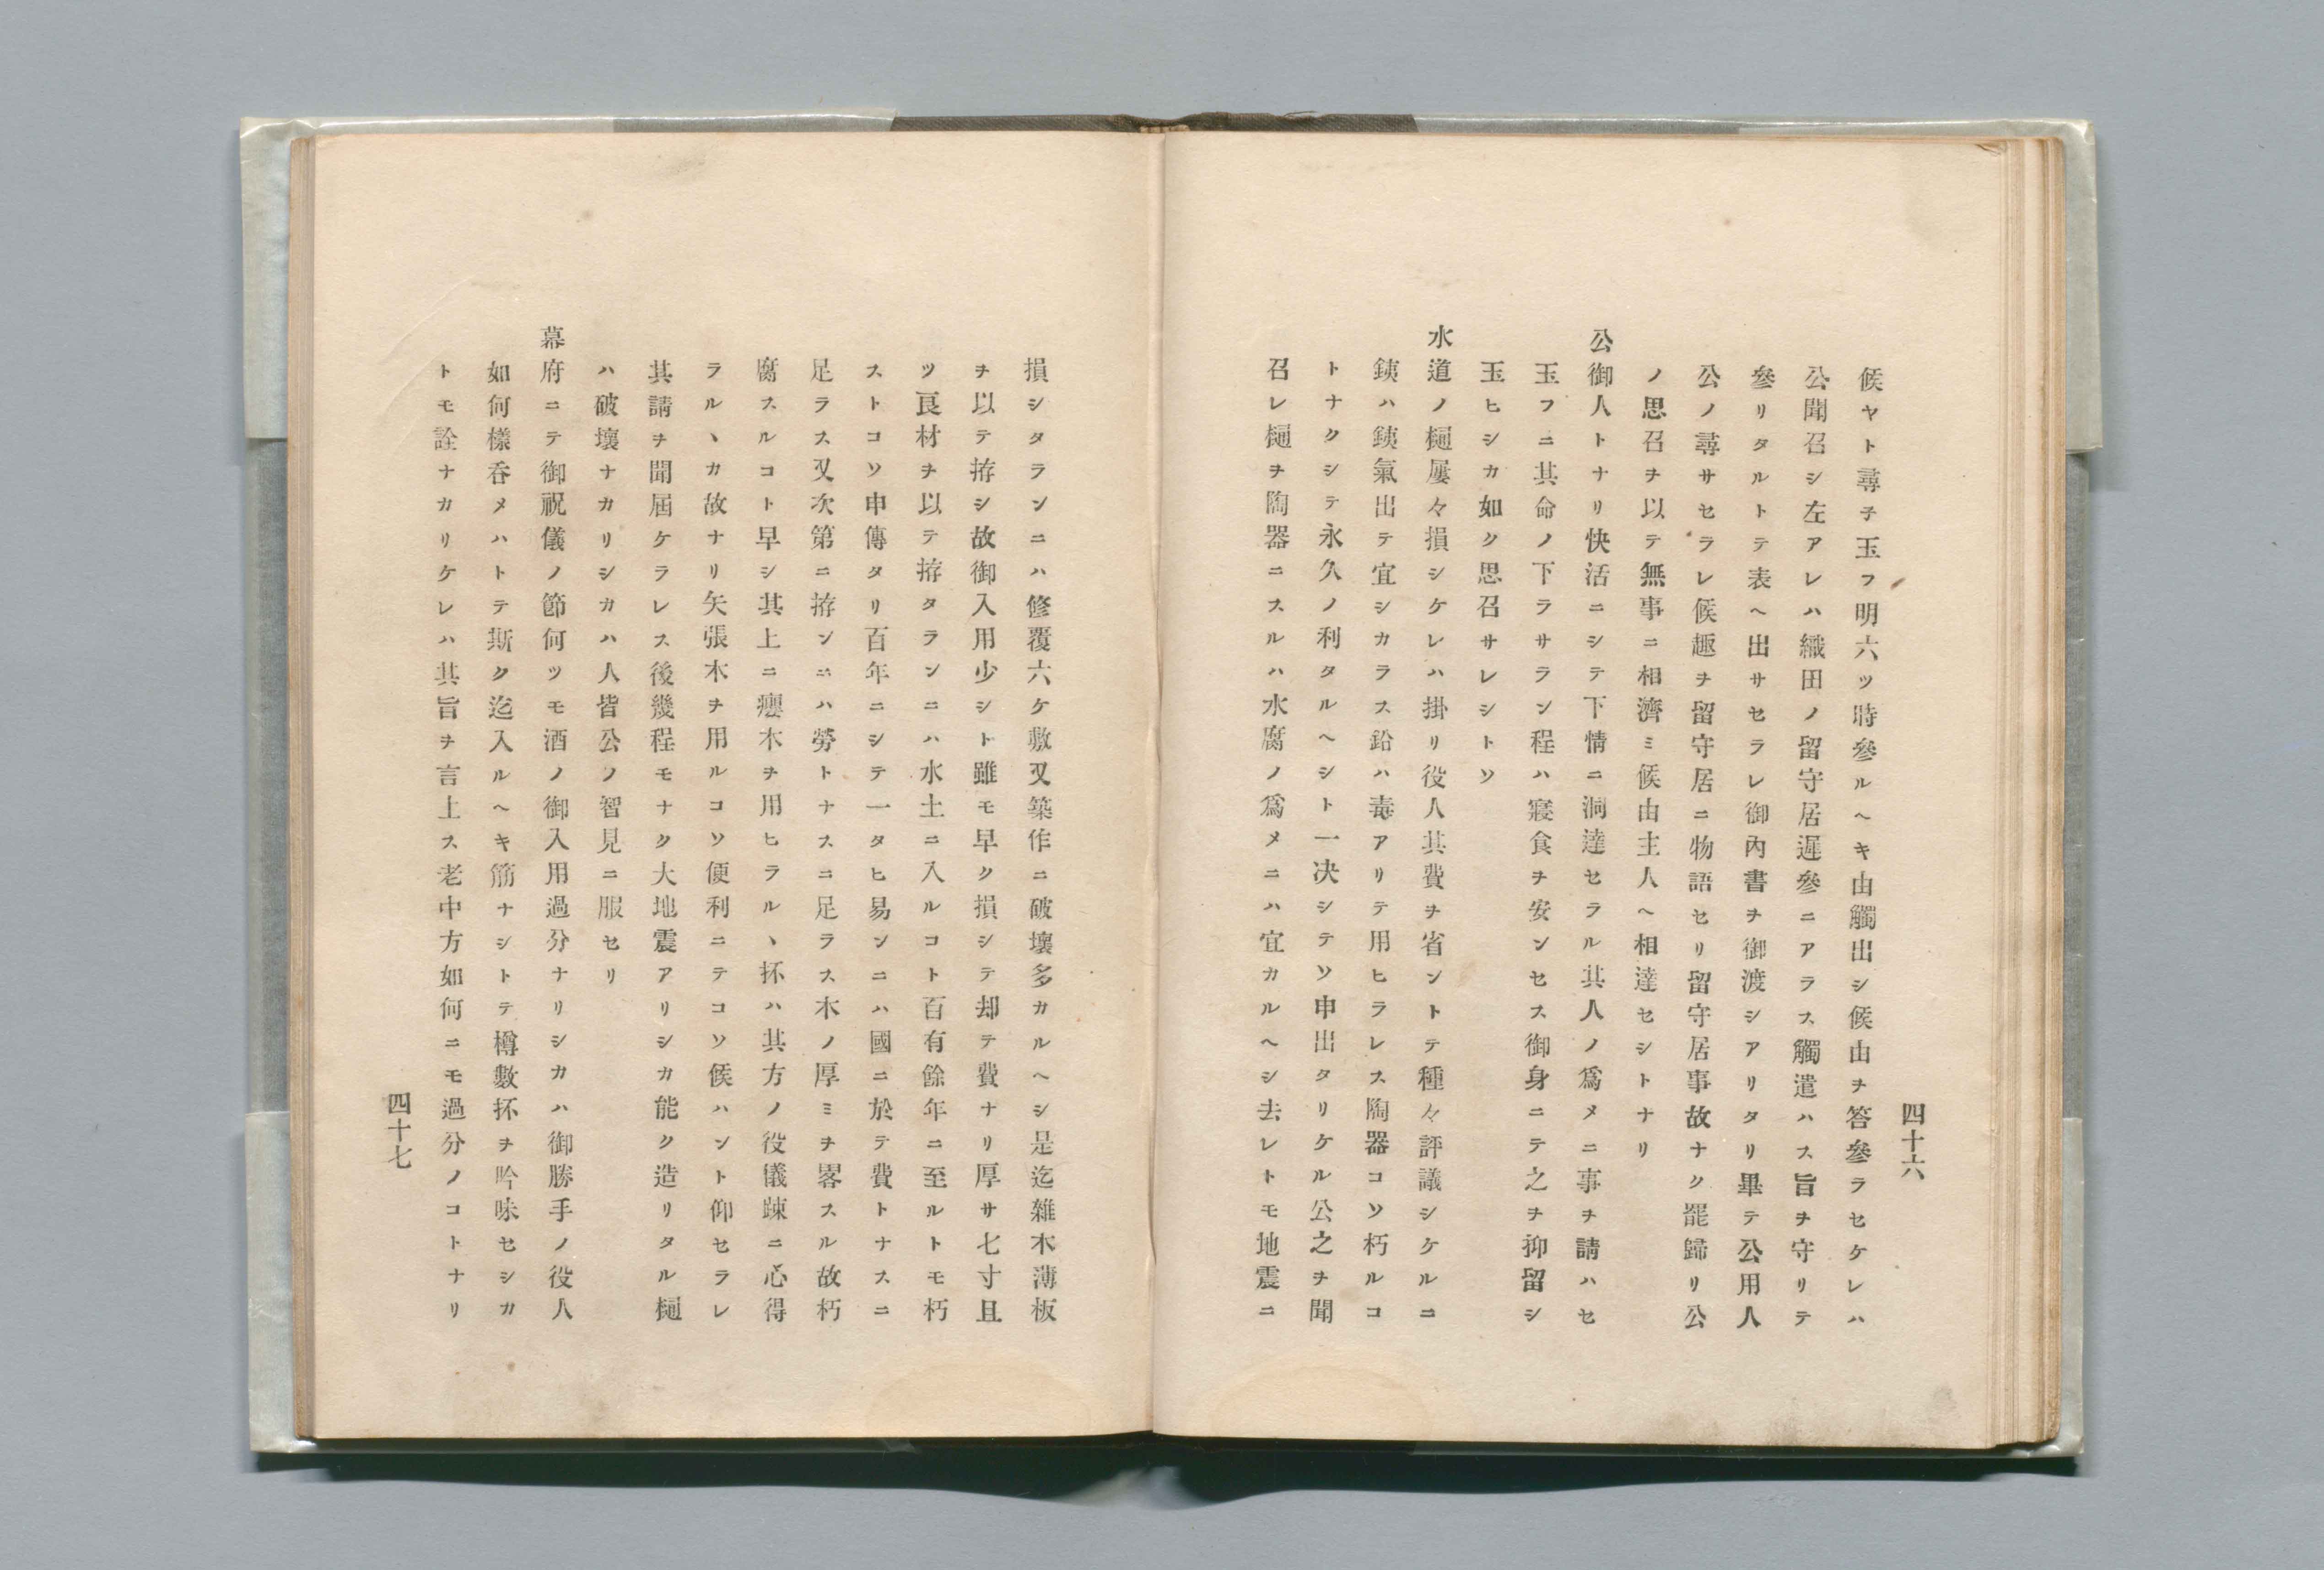 四十六
候ヤト尋子玉フ明六ツ時參ルヘキ由觸出シ候由ヲ答參ラセケレハ
公聞召シ左アレハ織田ノ留守居遲參ニアラス觸遣ハス旨ヲ守リテ
參リタルトテ表ヘ出サセラレ御內書ヲ御渡シアリタリ畢テ公用人
公ノ尋サセラレ候趣ヲ留守居ニ物語セリ留守居事故ナク罷歸リ公
ノ思召ヲ以テ無事ニ相濟ミ候由主人ヘ相達セシトナリ
公御人トナリ快活ニシテ下情ニ洞達セラル其人ノ爲メニ事ヲ請ハセ
玉フニ其命ノ下ラサラン程ハ寢食ヲ安ンセス御身ニテ之ヲ抑留シ
玉ヒシカ如ク思召サレシトソ
水道ノ樋屢々損シケレハ掛リ役人其費ヲ省ントテ種々評議シケルニ
銕ハ銕氣出テ宜シカラス鉛ハ毒アリテ用ヒラレス陶器コソ朽ルコ
トナクシテ永久ノ利タルヘシト一决シテソ申出タリケル公之ヲ聞
召レ樋ヲ陶器ニスルハ水腐ノ爲メニハ宜カルヘシ去レトモ地震ニ
損シタランニハ修覆六ケ敷又築作ニ破壞多カルヘシ是迄雜木薄板
ヲ以テ拵シ故御入用少シト雖モ早ク損シテ却テ費ナリ厚サ七寸且
ツ良材ヲ以テ拵タランニハ水土ニ入ルコト百有餘年ニ至ルトモ朽
ストコソ申傳タリ百年ニシテ一タヒ易ンニハ國ニ於テ費トナスニ
足ラス又次第ニ拵ンニハ勞トナスニ足ラス木ノ厚ミヲ畧スル故朽
腐スルコト早シ其上ニ癭木ヲ用ヒラルヽ抔ハ其方ノ役儀踈ニ心得
ラルヽカ故ナリ矢張木ヲ用ルコソ便利ニテコソ候ハント仰セラレ
其請ヲ聞屆ケラレス後幾程モナク大地震アリシカ能ク造リタル樋
ハ破壞ナカリシカハ人皆公ノ智見ニ服セリ
幕府ニテ御祝儀ノ節何ツモ酒ノ御入用過分ナリシカハ御勝手ノ役人
如何樣呑メハトテ斯ク迄入ルヘキ筋ナシトテ樽數抔ヲ吟味セシカ
トモ詮ナカリケレハ其旨ヲ言上ス老中方如何ニモ過分ノコトナリ
四十七